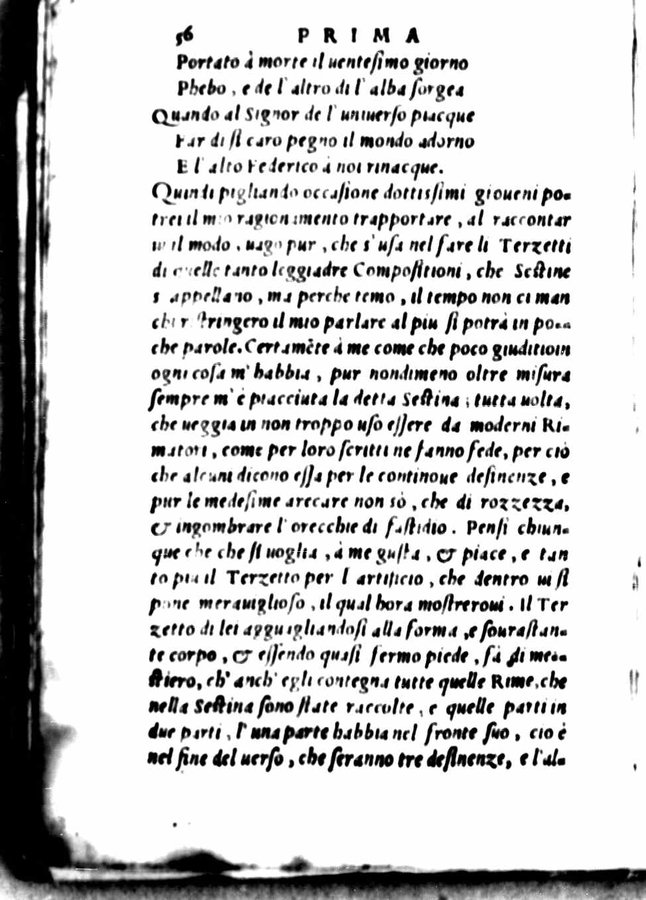 56 PRIMA
Portato à morte il uentesimo giorno
Phebo, e de l'altro dì l'alba sorgea
Quando al Signor de l'uniuerso piacque
Far di sì caro pegno il mondo adorno
E l'alto Federico à noi rinacque.
Quindi pigliando occasione dottissimi gioueni po-
trei il mio ragionamento trapportare, al raccontar
ui il modo, uago pur, che s'usa nel fare li Terzetti
di quelle tanto leggiadre Compositioni, che Sestine
s'appellano, ma perche temo, il tempo non ci man
chi ristringero il mio parlare al piu si potrà in po-
che parole. Certamẽte à me come che poco giuditio in
ogni cosa m'habbia, pur nondimeno oltre misura
sempre m'è piacciuta la detta Sestina; tutta uolta,
che ueggia in non troppo uso essere da moderni Ri-
matori, come per loro scritti ne fanno fede, per ciò
che alcuni dicono essa per le continoue desinenze, e
pur le medesime arecare non sò, che di rozzezza,
& ingombrare l'orecchie di fastidio. Pensi chiun-
que che che si uoglia, à me gusta, & piace, e tan
to piu il Terzetto per l artificio, che dentro ui si
pone merauiglioso, il qual hora mostreroui. Il Ter
zetto di lei agguagliandosi alla forma, e sourastan-
te corpo, & essendo quasi fermo piede, fà di me-
stiero, ch'anch'egli contegna tutte quelle Rime, che
nella Sestina sono state raccolte, e quelle parti in
due parti, l'una parte habbia nel fronte suo, cio è
nel fine del uerso, che seranno tre desinenze, e l'al-